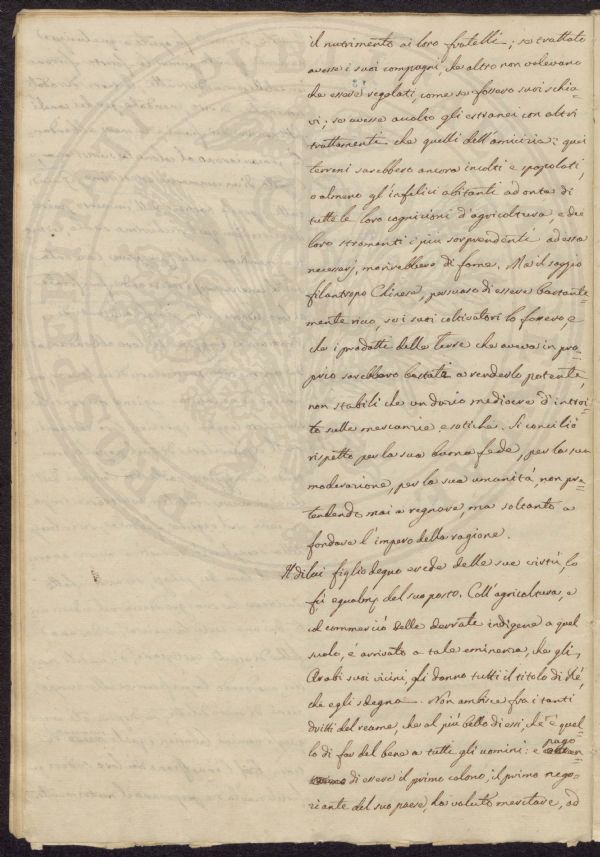 il nutrimento ai loro fratelli; se trattato
avesse i suoi compagni, che altro non volevano
che essere regolati, come se fossero suoi schia-
vi; se avesse accolto gli estranei con altri
trattamenti che quelli dell'amicizia: quei
terreni sarebbero ancora incolti e spopolati,
o almeno gl'infelici abitanti ad onta di
tutte le loro cognizioni d'agricoltura, e dei
loro stromenti i più sorprendenti ad essa
necessarj, morirebbero di fame. Ma il saggio
filantropo Chinese, persuaso di essere bastante=
mente ricco, se i suoi coltivatori lo fossero, e
che i prodotti delle Terre che aveva in pro=
prio sarebbero bastati a renderlo potente,
non stabilì che un dazio mediocre d'introi=
to sulle mercanzie esotiche. Si conciliò
rispetto per la sua buona fede, per la sua
moderazione, per la sua umanità, non pre=
tendendo mai a regnare, ma soltanto a
fondare l'impero della ragione.
Il di lui figlio degno erede delle sue virtù, lo
fù egualm.e del suo posto. Coll'agricoltura, e
col commercio delle derrate indigene a quel
suolo, è arrivato a tale eminenza, che gli
Arabi suoi vicini, gli danno tutti il titolo di Ré,
che egli sdegna. Non ambisce fra i tanti
dritti del reame, che al più bello di essi, ch'è quel=
lo di far del bene a tutti gli uomini: e pago
di essere il primo colono, il primo nego=
ziante del suo paese, ha voluto meritare, ed